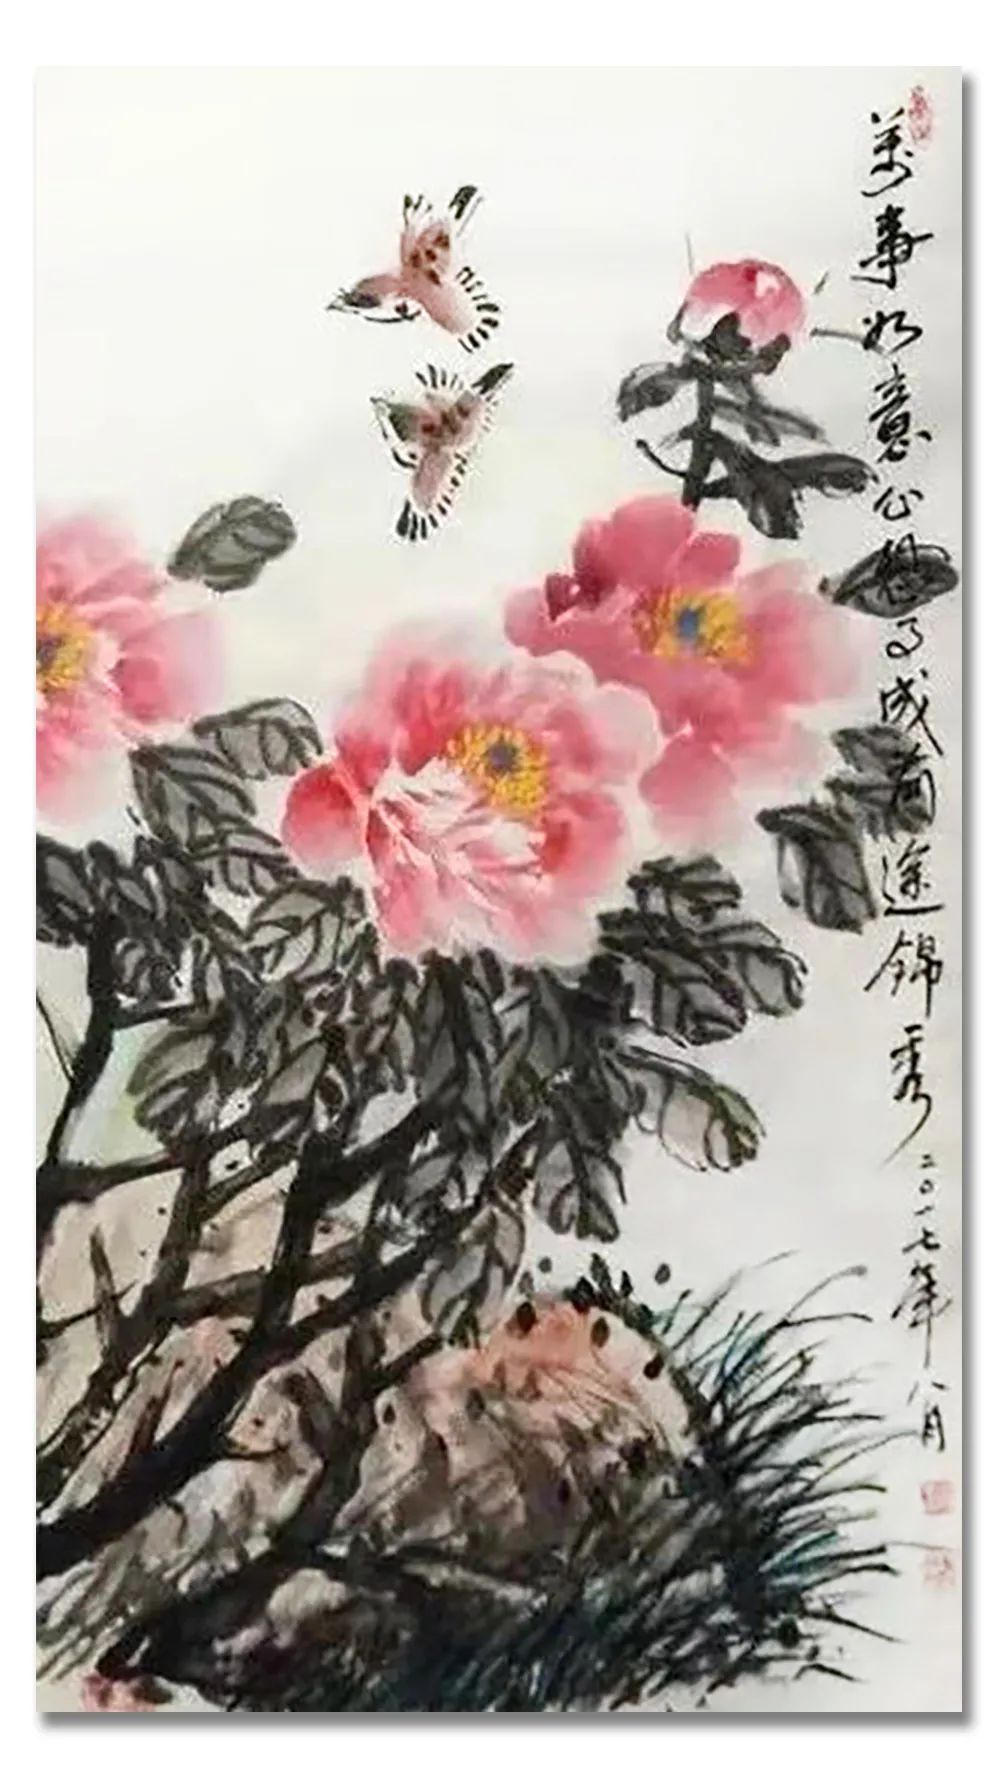 萬事如意心想事成前途锦秀二〇一七年八月